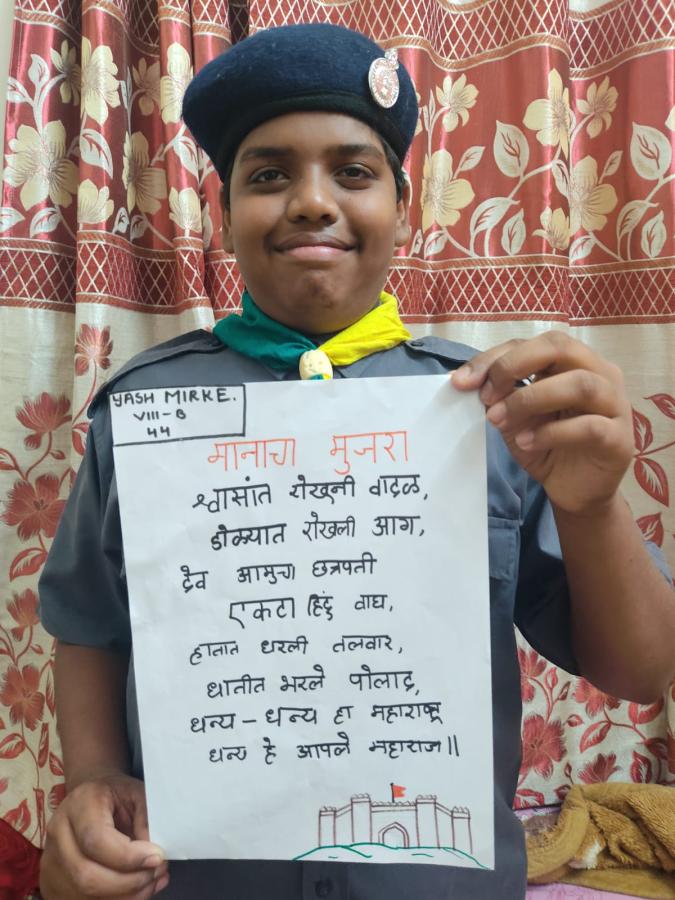 YASH MIRKE.
VIII-B
44
मानाचा मुजरा
श्वासांत रोखूनी वादळ,
डोळ्यात रोखली आग,
देव आमुचा छत्रपती
एकटा हिंदु वाघ,
हातात धरली तलवार,
छातीत भरले पोलाद,
धन्य - धन्य हा महाराष्ट्र
धन्य हे आपले महाराज॥